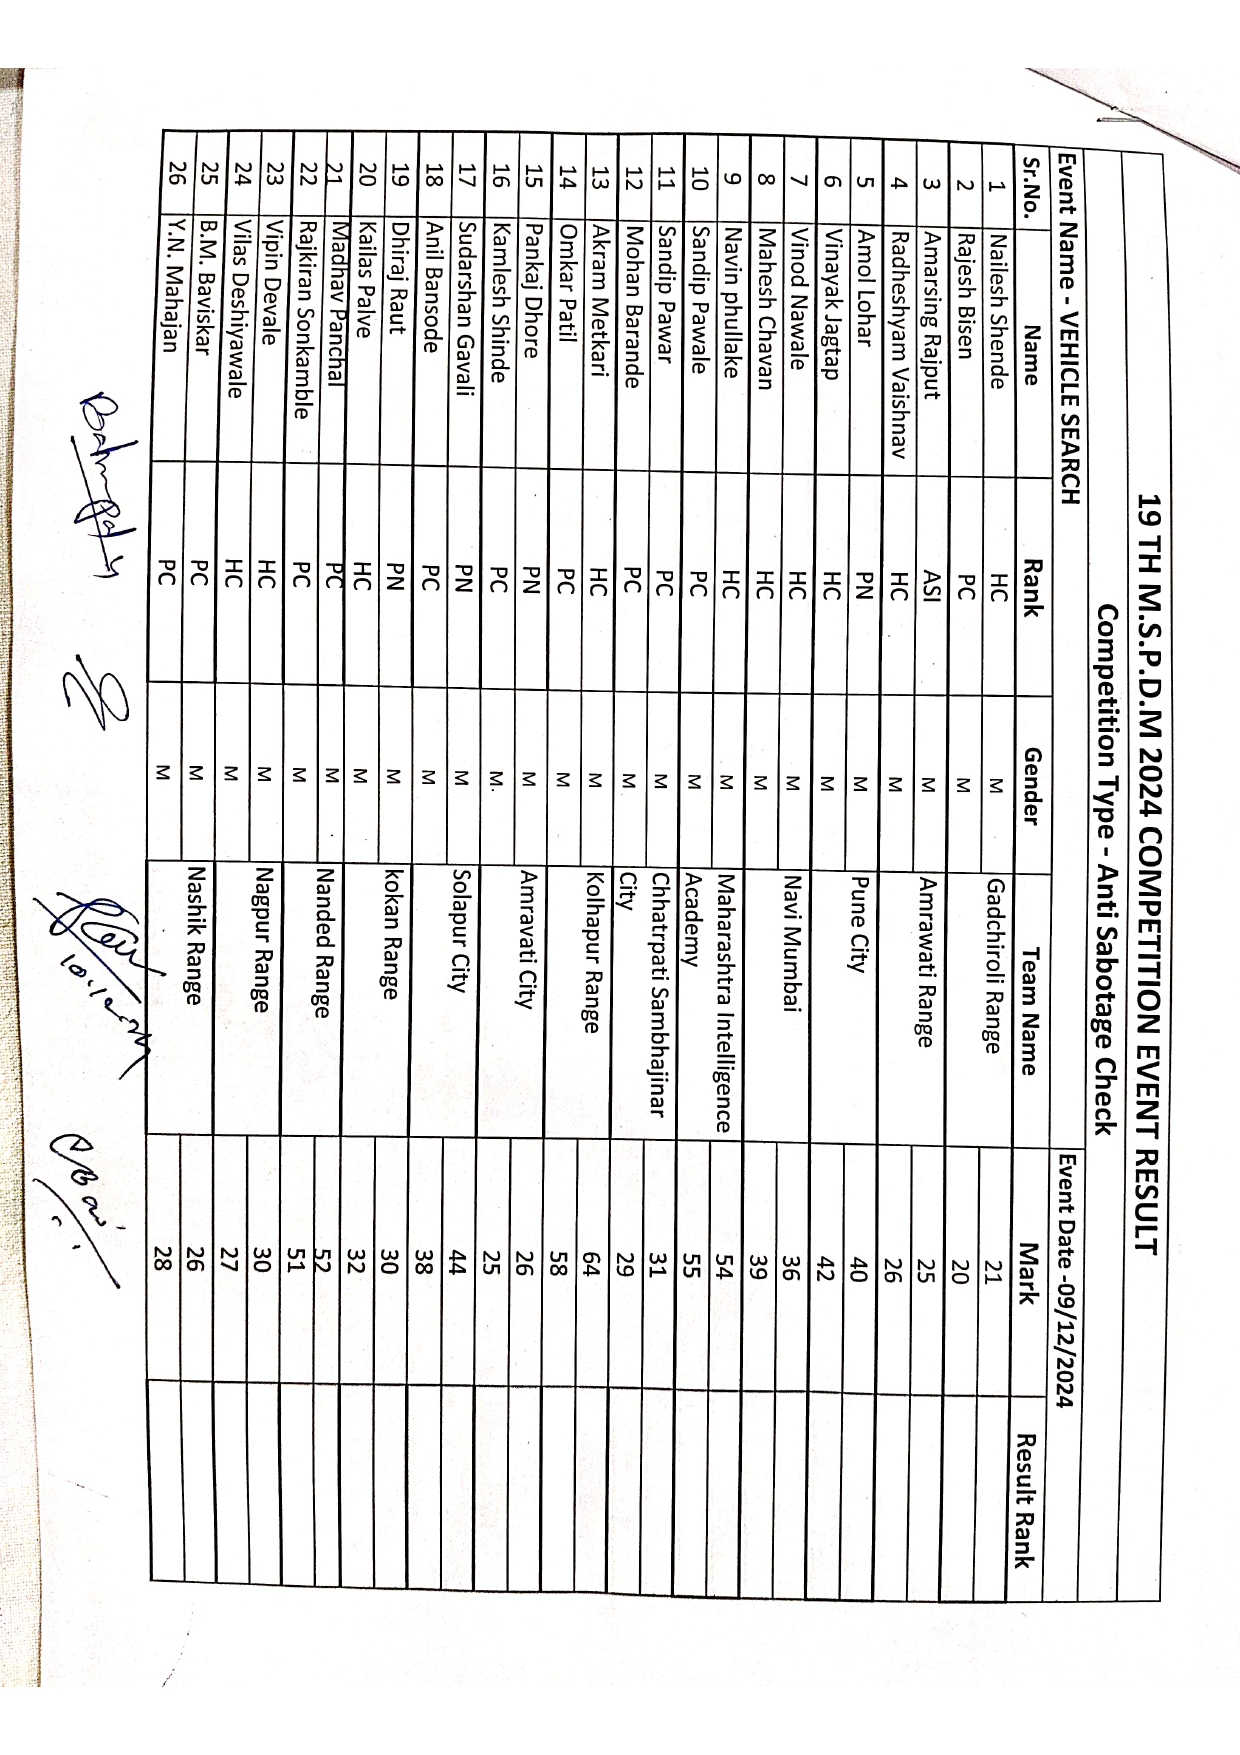 19 TH M.S.P.D.M 2024 COMPETITION EVENT RESULT
Competition Type - Anti Sabotage Check
Event Name - VEHICLE SEARCH Event Date -09/12/2024
Sr.No. Name Rank Gender Team Name Mark Result Rank
1 Nailesh Shende HC M Gadchiroli Range 21
2 Rajesh Bisen PC M 20
3 Amarsing Rajput ASI M Amrawati Range 25
4 Radheshyam Vaishnav HC M 26
5 Amol Lohar PN M Pune City 40
6 Vinayak Jagtap HC M 42
7 Vinod Nawale HC M Navi Mumbai 36
8 Mahesh Chavan HC M 39
9 Navin phullake HC M Maharashtra Intelligence 54
10 Sandip Pawale PC M Academy 55
11 Sandip Pawar PC M Chhatrpati Sambhajinar 31
12 Mohan Barande PC M City 29
13 Akram Metkari HC M Kolhapur Range 64
14 Omkar Patil PC M 58
15 Pankaj Dhore PN M Amravati City 26
16 Kamlesh Shinde PC M 25
17 Sudarshan Gavali PN M Solapur City 44
18 Anil Bansode PC M 38
19 Dhiraj Raut PN M kokan Range 30
20 Kailas Palve HC M 32
21 Madhav Panchal PC M Nanded Range 52
22 Rajkiran Sonkamble PC M 51
23 Vipin Devale HC M Nagpur Range 30
24 Vilas Deshiyawale HC M 27
25 B.M. Baviskar PC M Nashik Range 26
26 Y.N. Mahajan PC M 28